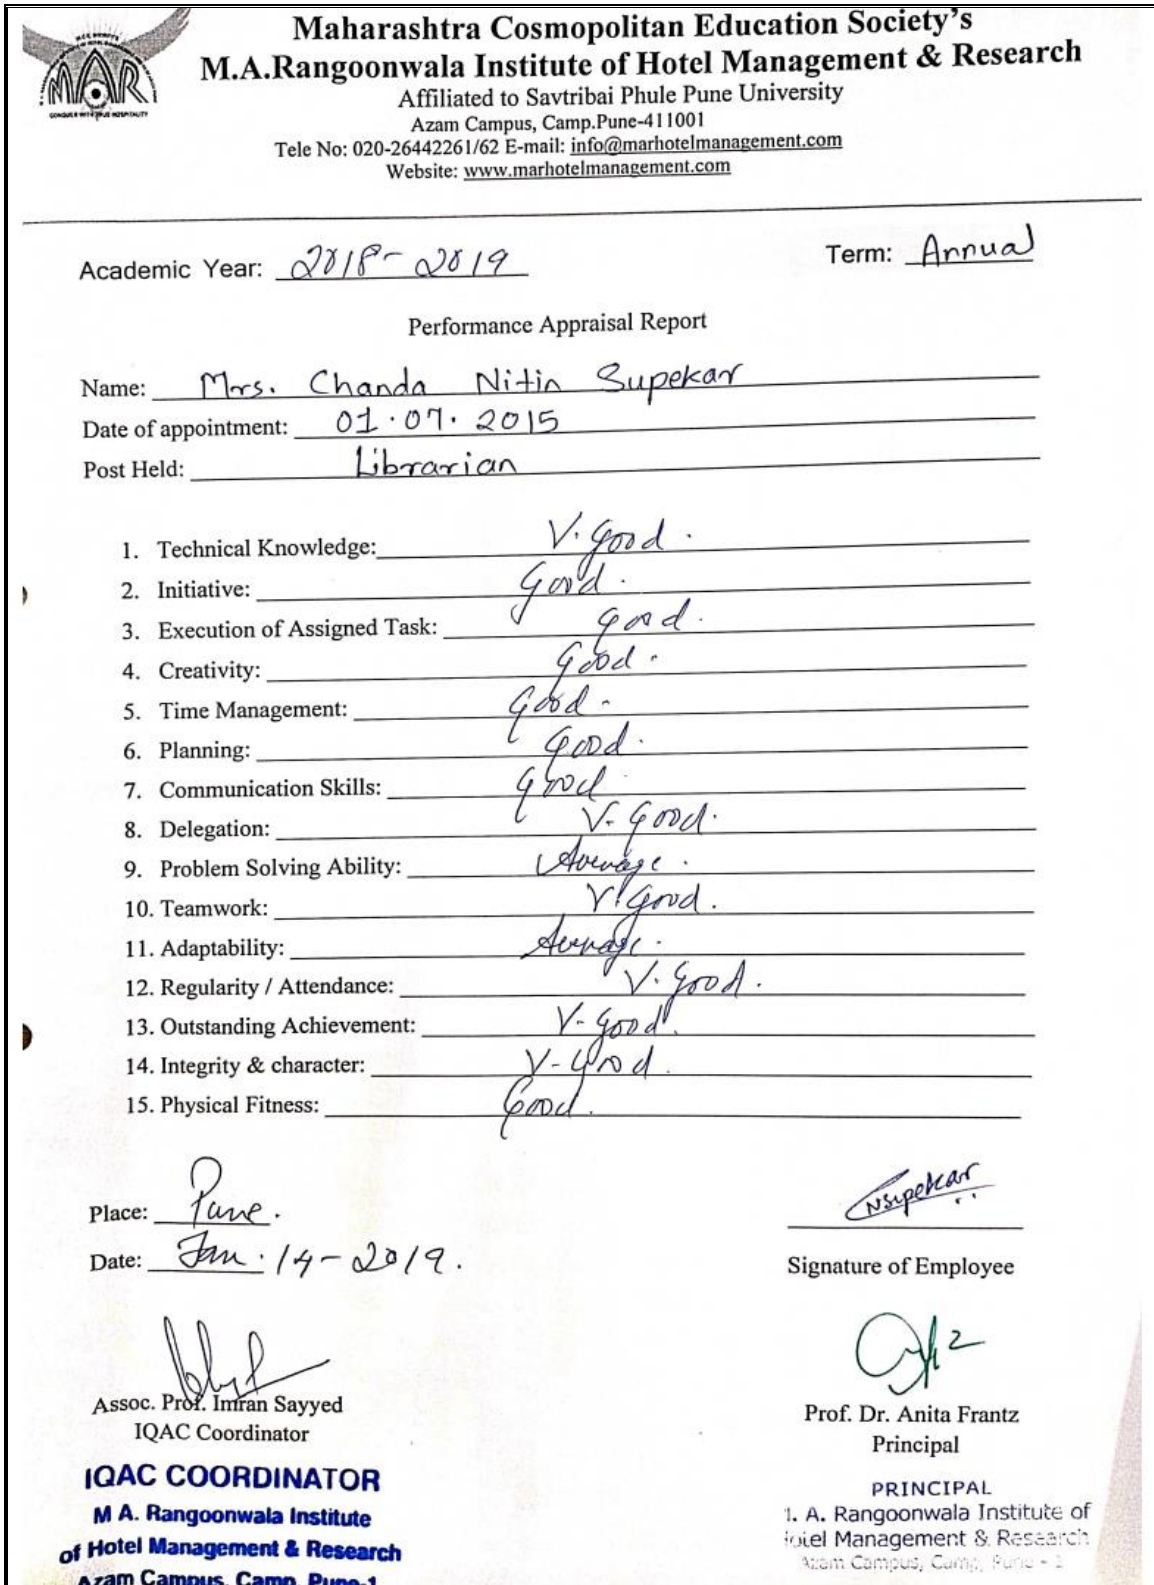 Maharashtra Cosmopolitan Education Society's
M.A.Rangoonwala Institute of Hotel Management & Research
Affiliated to Savtribai Phule Pune University
Azam Campus, Camp.Pune-411001
Tele No: 020-26442261/62 E-mail: info@marhotelmanagement.com
Website: www.marhotelmanagement.com
MAR
Academic Year: 2018-2019 Term: Annual
Performance Appraisal Report
Name: Mrs. Chanda Nitin Supekar
Date of appointment: 01.07.2015
Post Held: Librarian
1. Technical Knowledge: V. Good.
2. Initiative: Good.
3. Execution of Assigned Task: Good.
4. Creativity: Good.
5. Time Management: Good.
6. Planning: Good.
7. Communication Skills: Good
8. Delegation: V. Good.
9. Problem Solving Ability: Average.
10. Teamwork: V. Good.
11. Adaptability: Average.
12. Regularity / Attendance: V. Good.
13. Outstanding Achievement: V. Good.
14. Integrity & character: V-Good.
15. Physical Fitness: Good.
Place: Pune.
NSupekar
Date: Jan. 14-2019.
Signature of Employee
Assoc. Prof. Imran Sayyed
IQAC Coordinator
Prof. Dr. Anita Frantz
Principal
IQAC COORDINATOR
M A. Rangoonwala Institute
of Hotel Management & Research
Azam Campus, Camp, Pune-1
PRINCIPAL
A. Rangoonwala Institute of
Hotel Management & Research
Azam Campus, Camp, Pune - 1